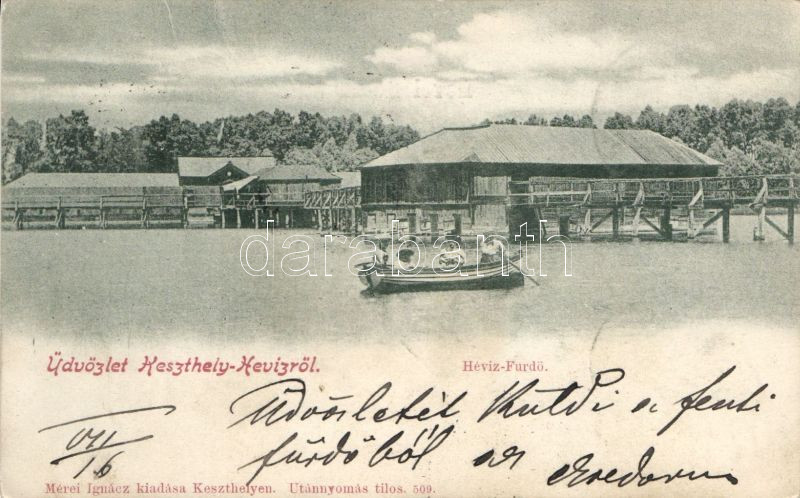 darabanth
Üdvözlet Keszthely-Hevizről.
Héviz-Furdö.
VII
16
Üdvösletét Küldi a fenti
fürdőből az
Mérei Ignácz kiadása Keszthelyen. Utánnyomás tilos. 509.